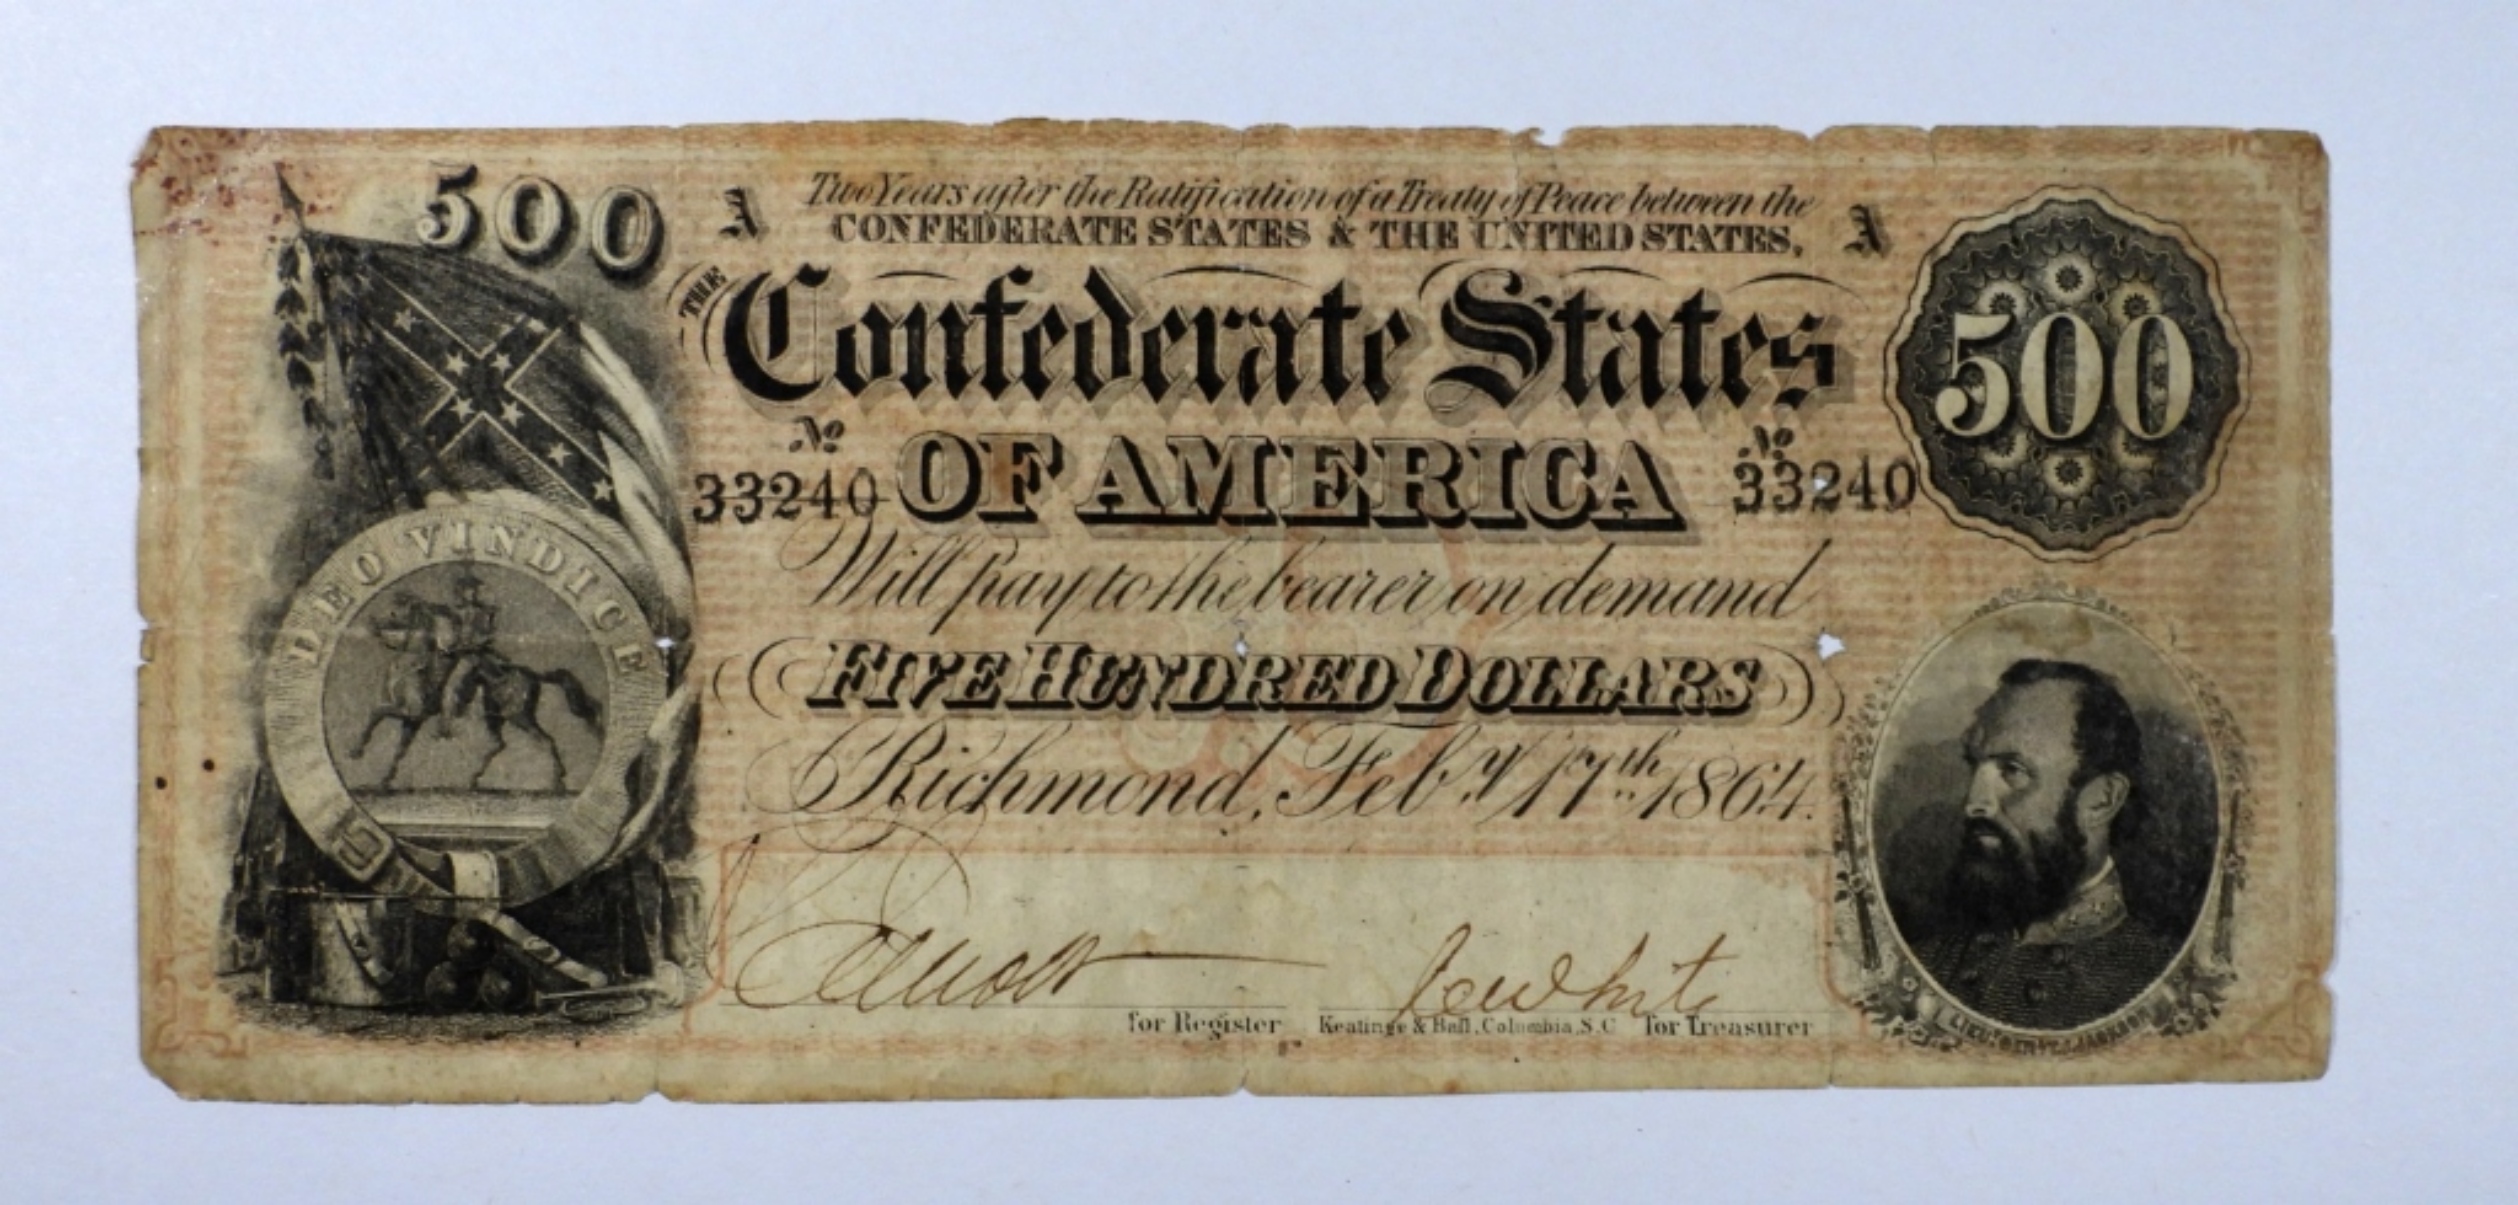 500
A
Two Years after the Ratification of a Treaty of Peace between the
CONFEDERATE STATES & THE UNITED STATES,
A
THE
Confederate States
500
No
33240
OF AMERICA
No
33240
Will pay to the bearer on demand
DEO VINDICE
FIVE HUNDRED DOLLARS
Richmond, Feby. 17th. 1864.
Elliott
White
for Register
Keatinge & Ball, Columbia, S.C
for Treasurer
LIEUT. GEN. T. J. JACKSON